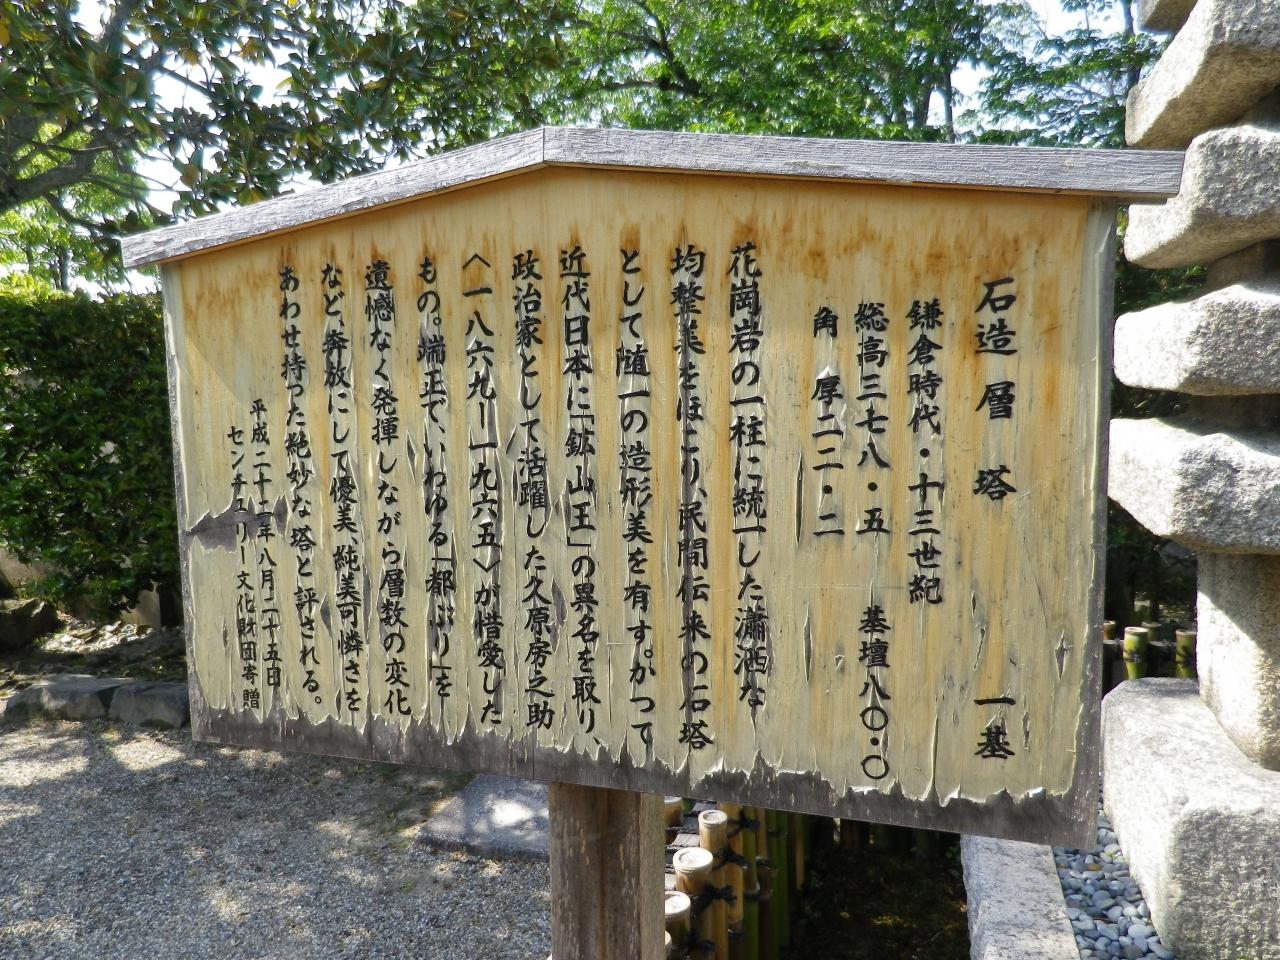 石造層塔 一基
鎌倉時代・十三世紀
総高三七八・五 基壇八〇・〇
角 厚二二・二
花崗岩の一柱に統一した瀟洒な
均整美をほこり、民間伝来の石塔
として随一の造形美を有す。かつて
近代日本に「鉱山王」の異名を取り、
政治家として活躍した久原房之助
〈一八六九ー一九六五〉が惜愛した
もの。端正で、いわゆる「都ぶり」を
遺憾なく発揮しながら層数の変化
など、奔放にして優美、純美可憐さを
あわせ持った絶妙な塔と評される。
平成二十一年八月二十五日
センチュリー文化財団寄贈